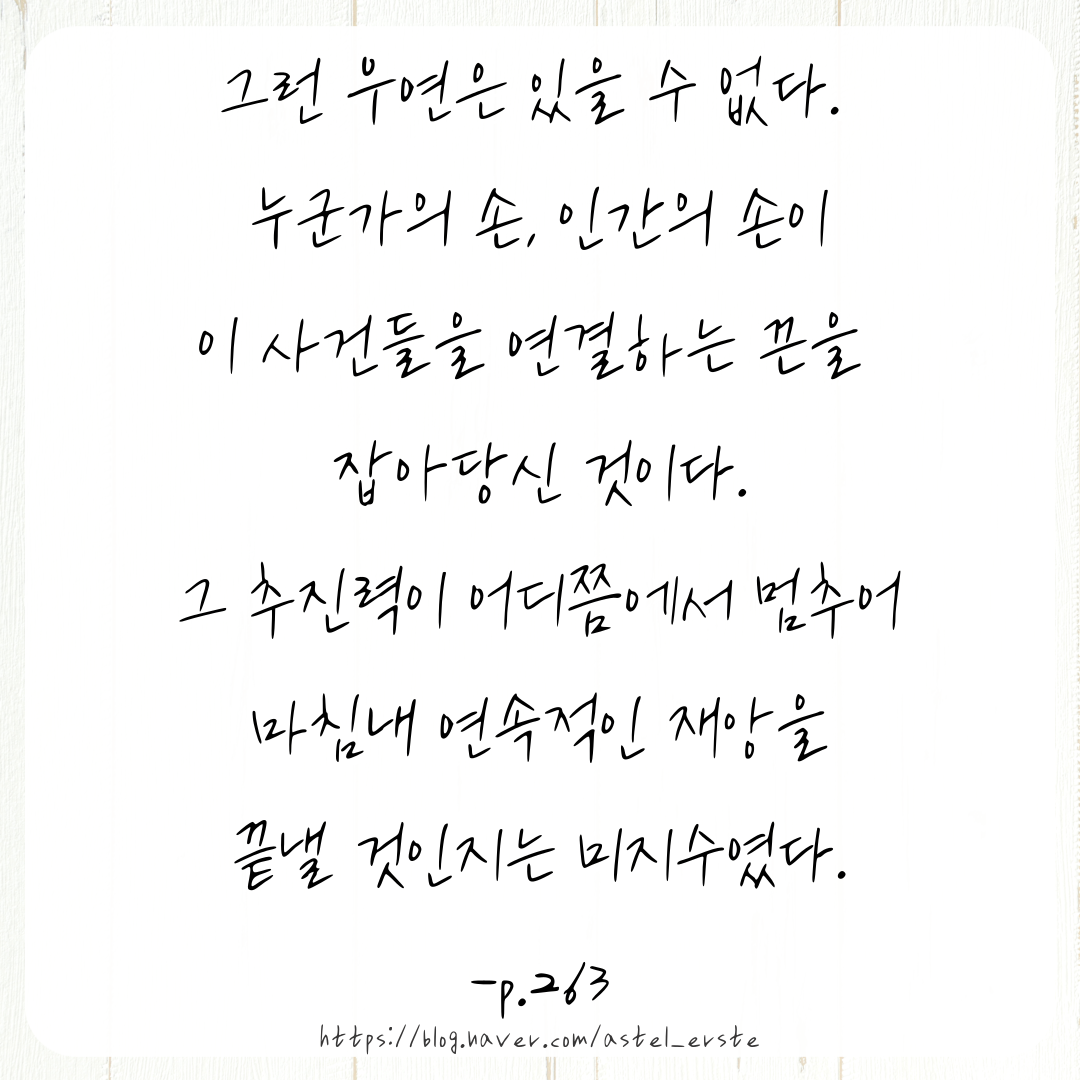 그런 우연은 있을 수 없다.
누군가의 손, 인간의 손이
이 사건들을 연결하는 끈을
잡아당신 것이다.
그 추진력이 어디쯤에서 멈추어
마침내 연속적인 재앙을
끝낼 것인지는 미지수였다.
-p.263
https://blog.naver.com/astel_erste